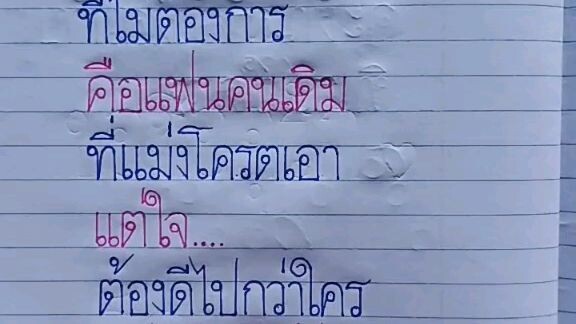 ที่ไม่ต้องการ
คือแฟนคนเดิม
ที่แม่งโครตเอา
แต่ใจ....
ต้องดีไปกว่าใคร